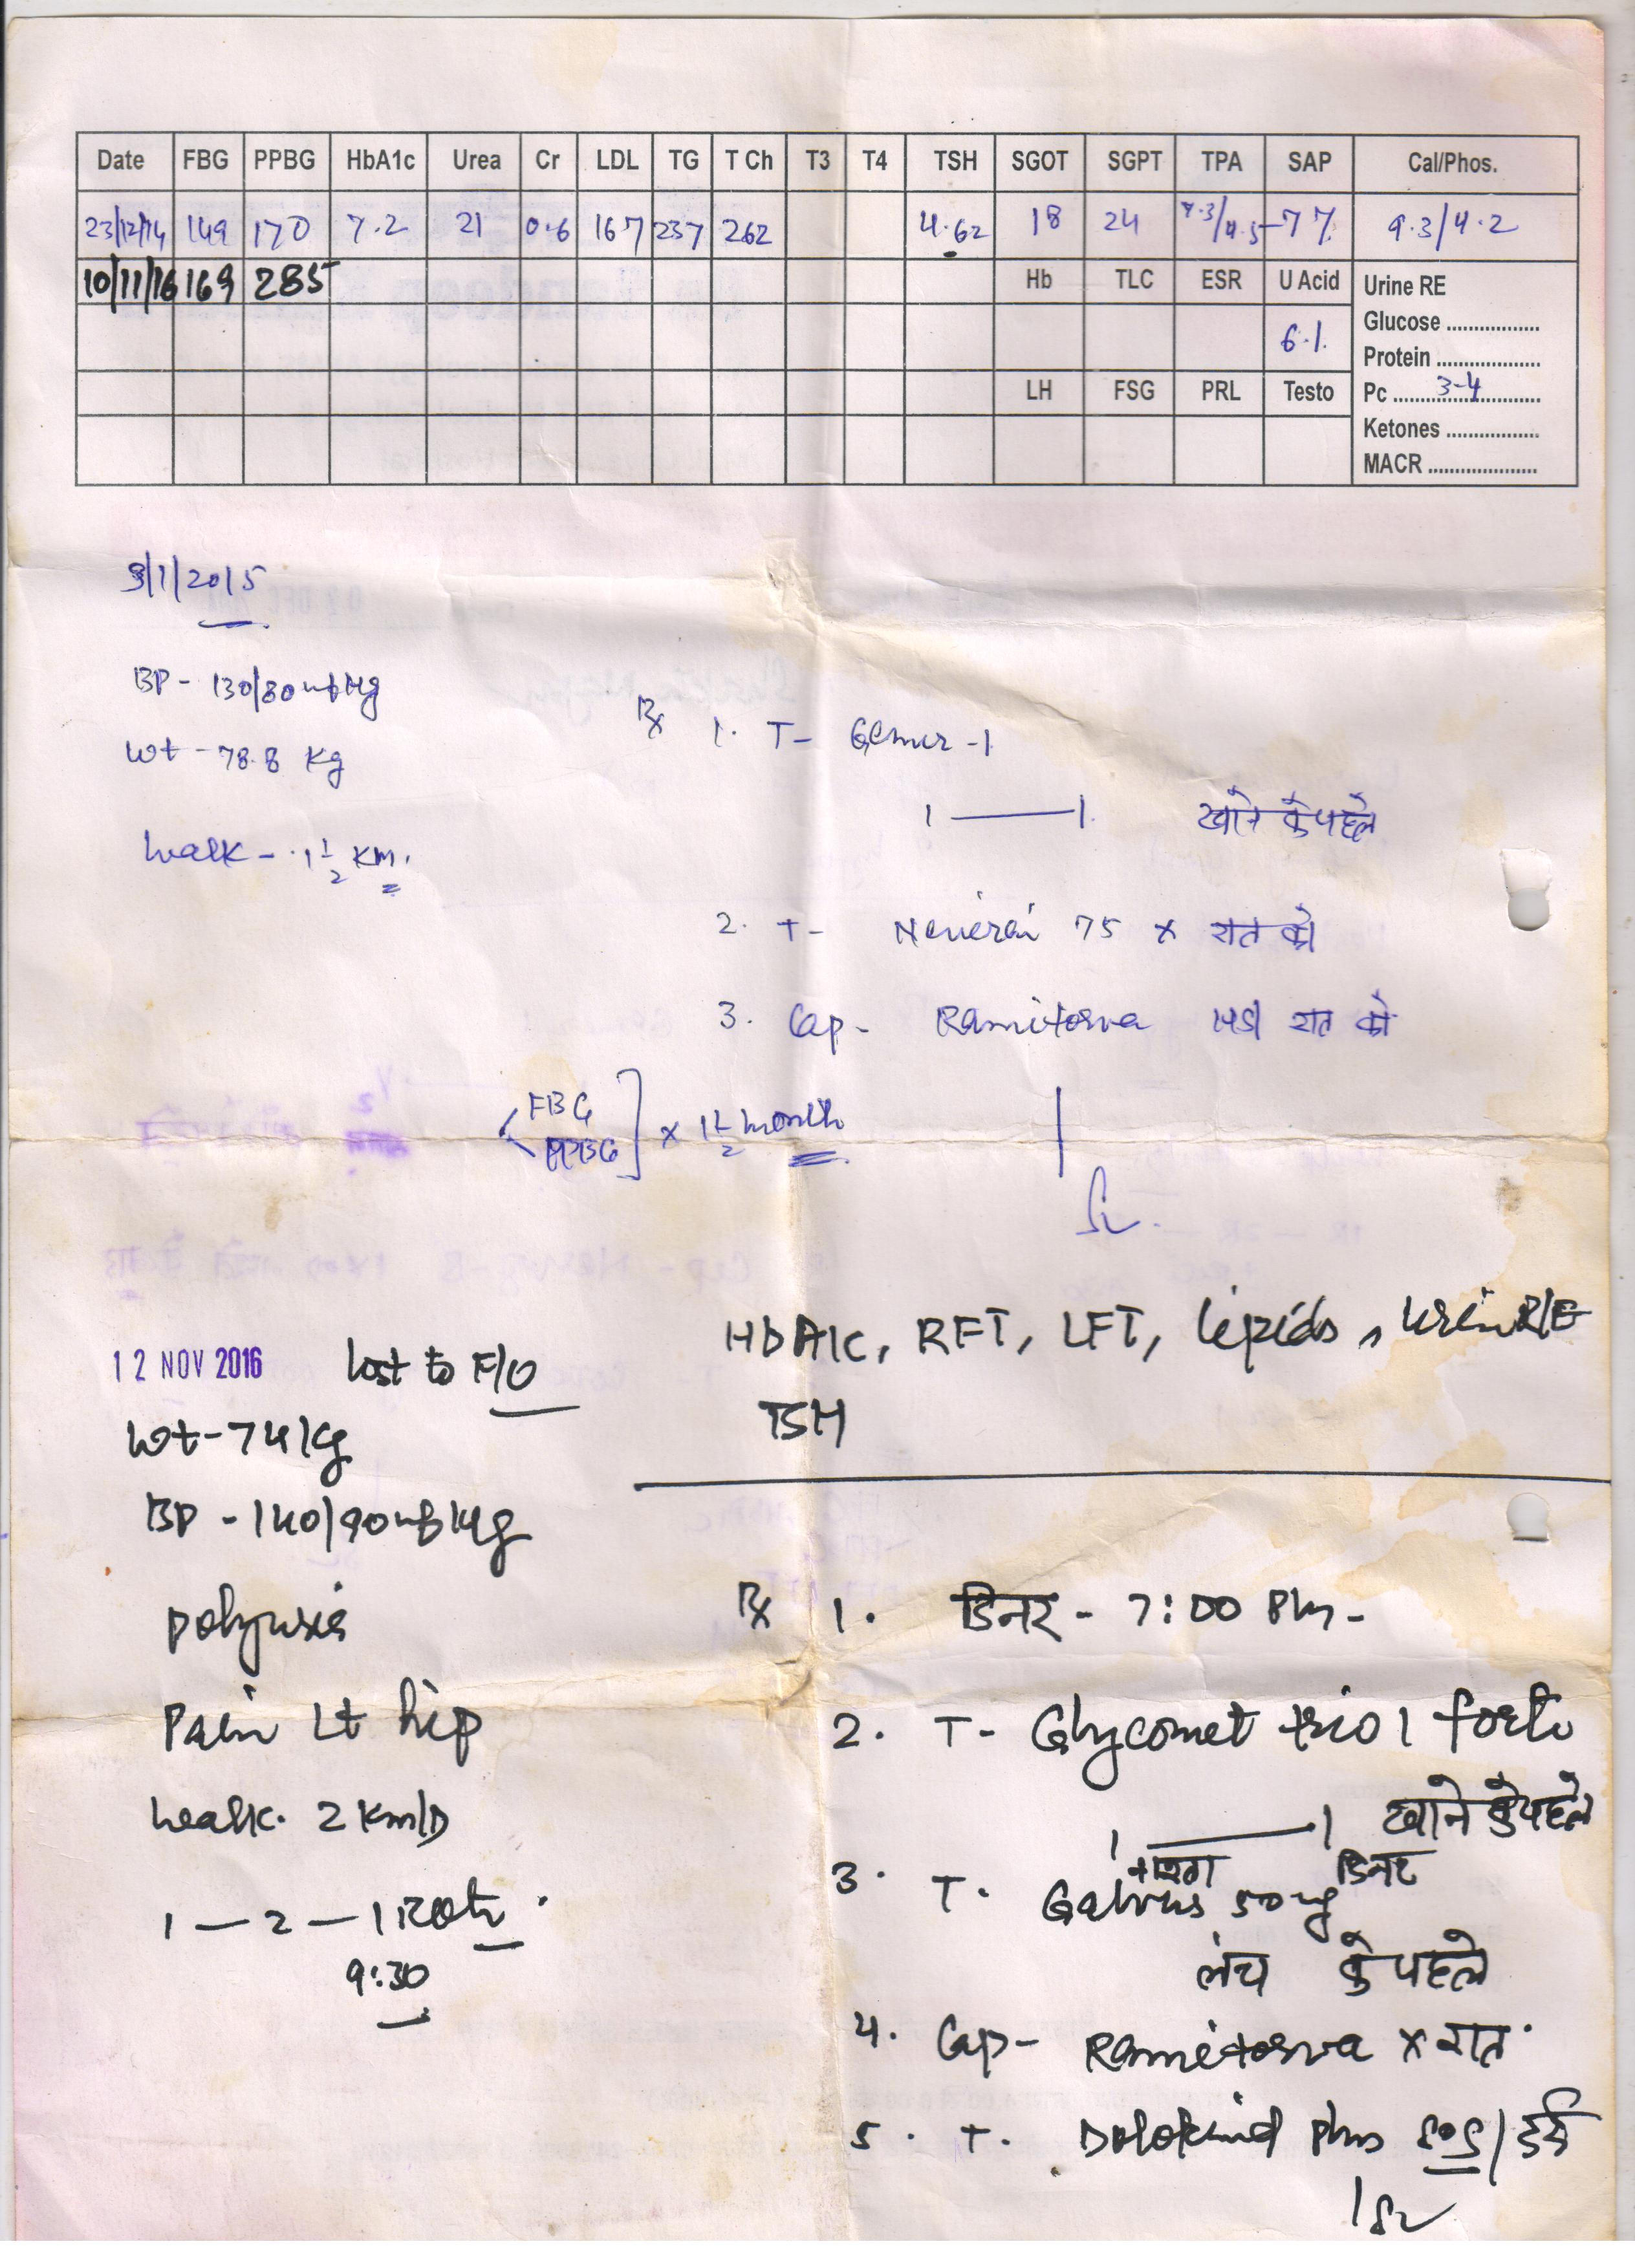 Date FBG PPBG HbA1c Urea Cr LDL TG T Ch T3 T4 TSH SGOT SGPT TPA SAP Cal/Phos.
23/12/14 149 170 7.2 21 0.6 167 237 262 4.62 18 24 7.3/4.5 77 9.3/4.2
10/11/16 169 285 Hb TLC ESR U Acid Urine RE
Glucose .................
6.1 Protein ...................
LH FSG PRL Testo Pc ..... 3-4 .....
Ketones .................
MACR .....................
3/1/2015
BP - 130/80 mmHg
Rx 1. T- Glmer -1
Wt - 78.8 Kg
1 — 1 खाने के पहले
Walk - 1 1/2 KM.
2. T- 75 x रात को
3. Cap - Ramitorva रात को
FBG
PPBG ] x 1 1/2 month
HbA1c, RFT, LFT, Lipids, Urine R/E
12 NOV 2016 Lost to F/O
TSH
Wt - 74 kg
BP - 140/90 mmHg
Polyuria
Rx 1. डिनर - 7:00 PM -
Pain Lt hip
2. T- Glycomet trio 1 forte
Walk. 2 km/D
1 — 1 खाने के पहले
डिनर
3. T. Galvus 50 mg
1 — 2 — 1 Roti.
लंच के पहले
9:30
4. Cap - Ramitorva x रात.
5. T. Dolokind plus SOS/दर्द